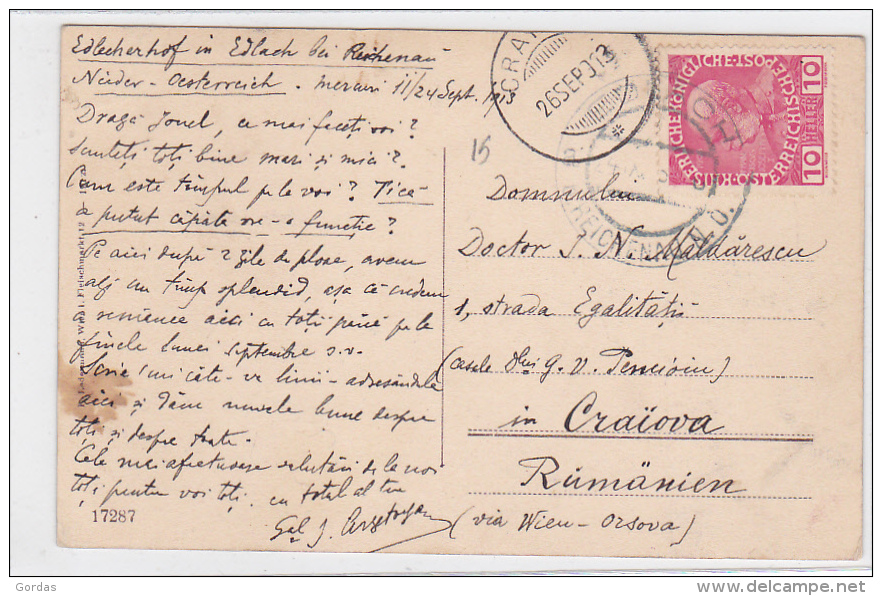 Edlacherhof in Edlach bei Reichenau
Nieder-Oesterreich. Mercuri 11/24 Sept. 1913
Dragă Ionel, ce mai faceți voi?
Sunteți toți bine mari și mici?
Cum este timpul pe la voi? Tică
a putut căpăta vre-o funcție?
Pe aici după 2 zile de ploae, avem
azi un timp splendid, așa că credem
remânea aici cu toții până pe la
finele lunei septembre s.v.
Scrie-mi câte-va linii adresându-le
aici și dă-ne nouvele bune despre
toți și despre toate.
Cele mai afectuoase salutări de la noi
toți pentru voi toți. cu totul al tău
Gal. I.
17287
Wien I. Fleischmarkt 12
CRAI
26SEP913
15
REICHENAU N.Ö.
KAISERLICHE KÖNIGLICHE POST
ÖSTERREICHISCHE
10 HELLER 10
Domnului
Doctor I. N. Maldărescu
1, strada Egalității
(casele Dlui G. V. Pencioiu)
in Craïova
Rumänien
(via Wien-Orsova)
Gordas
delcampe.net